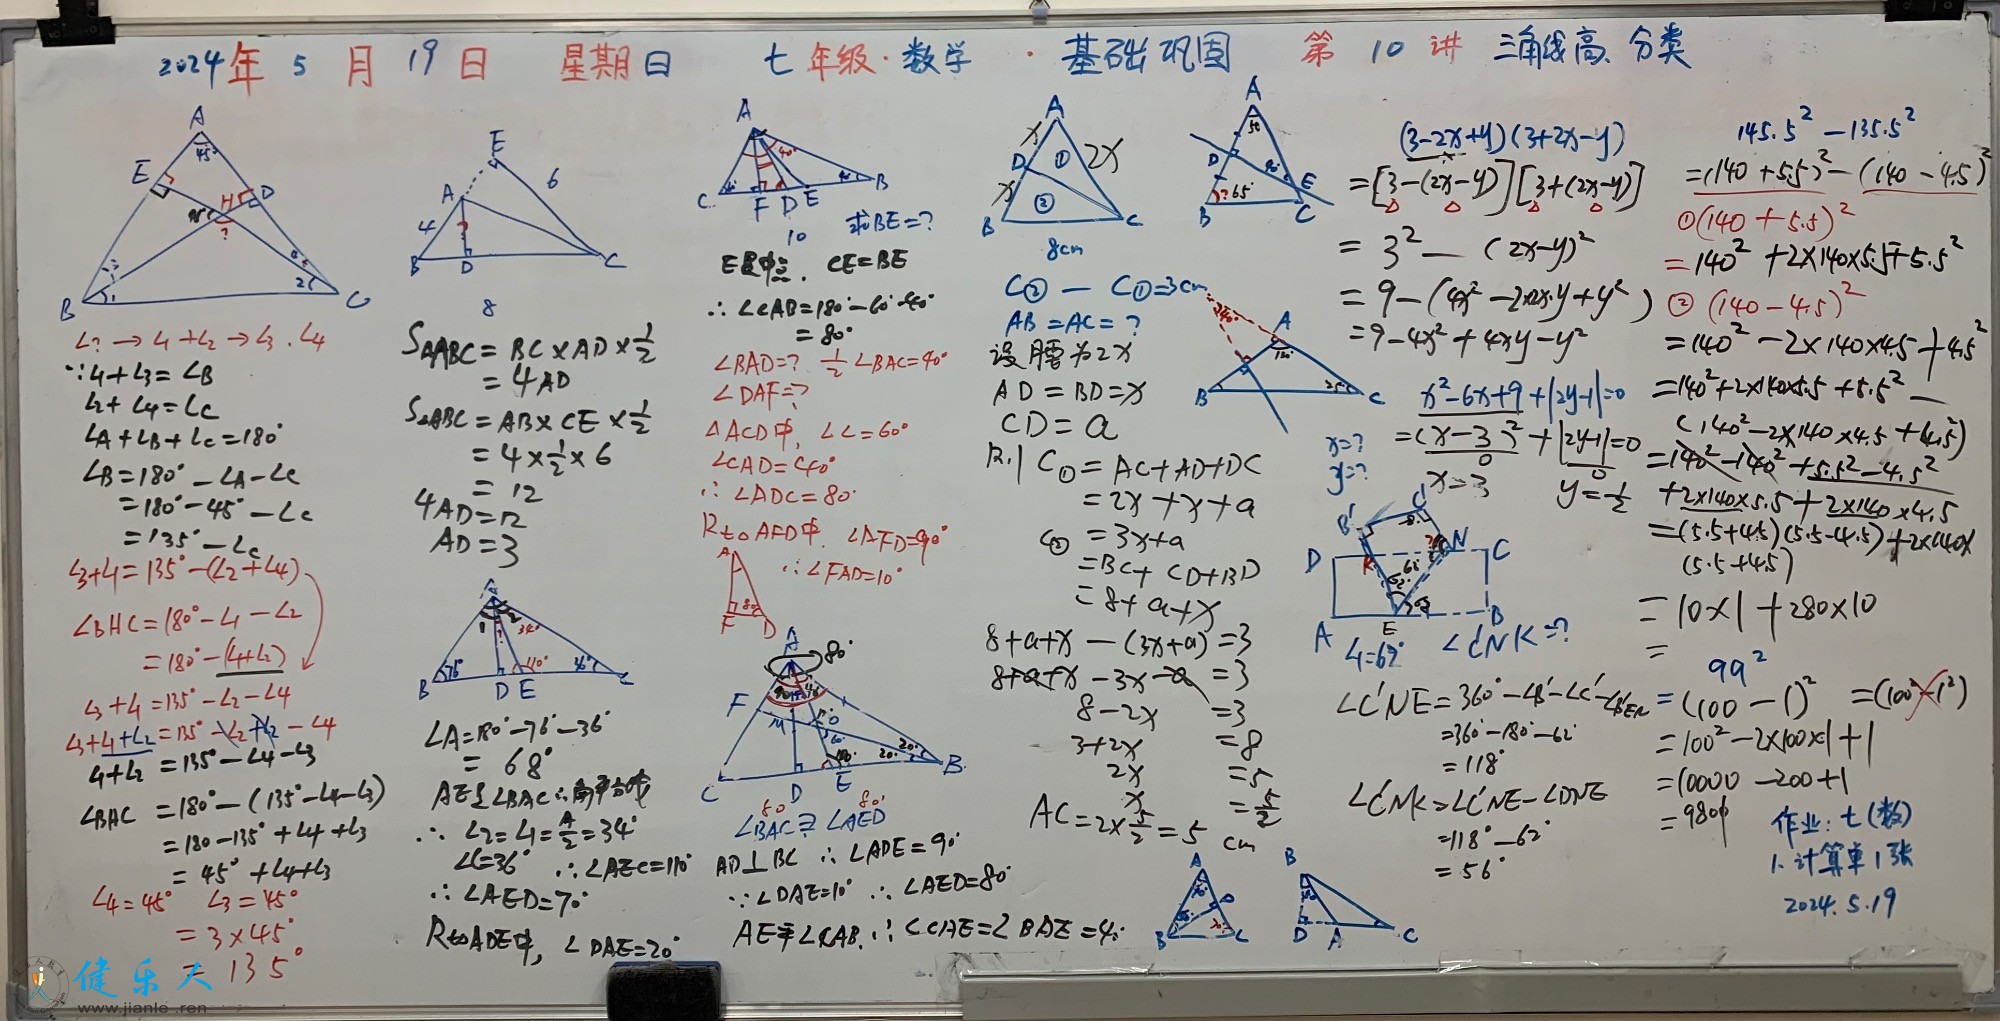 2024年 5 月 19 日 星期日 七年级·数学 · 基础巩固 第 10 讲 三角线高.分类
A
45°
E
H
D
?
B
C
∠? → ∠1+∠2 → ∠3.∠4
∵∠1+∠3=∠B
∠2+∠4=∠C
∠A+∠B+∠C=180°
∠B=180°-∠A-∠C
=180°-45°-∠C
=135°-∠C
∠3+∠1=135°-(∠2+∠4)
∠BHC=180°-∠1-∠2
=180°-(∠1+∠2)
∠3+∠1=135°-∠2-∠4
∠3+∠1+∠2=135°-∠2+∠2-∠4
∠1+∠2=135°-∠4-∠3
∠BAC=180°-(135°-∠4-∠3)
=180-135°+∠4+∠3
=45°+∠4+∠3
∠4=45° ∠3=45°
=3×45°
=135°
E
A
6
4
?
B
D
C
8
S△ABC=BC×AD×1/2
=4AD
S△ABC=AB×CE×1/2
=4×1/2×6
=12
4AD=12
AD=3
A
1
2
34°
76°
110°
36°
B
D E
C
∠A=180°-76°-36°
=68°
AE是∠BAC∴角平分线
∴∠2=∠1=A/2=34°
∠C=36° ∴∠AEC=110°
∴∠AED=70°
Rt△ADE中, ∠DAE=20°
A
40°
C
F D E
B
10
求BE=?
E是中点. CE=BE
∴∠CAB=180°-60°-40°
=80°
∠BAD=? 1/2∠BAC=40°
∠DAF=?
△ACD中, ∠C=60°
∠CAD=40°
∴∠ADC=80°
Rt△AFD中, ∠AFD=90°
∴∠FAD=10°
A
80°
F D
A
80°
F
M
O
20°
20°
C
D
E
B
80 80°
∠BAC=?∠AED
AD⊥BC ∴∠ADE=90°
∵∠DAE=10° ∴∠AED=80°
AE平∠CAB.∴∠CAE=∠BAE=40°
A
x
2x
D
①
x
②
B
C
8cm
C② - C①=3cm
AB=AC=?
设腰为2x
AD=BD=x
CD=a
R.1 C①=AC+AD+DC
=2x+x+a
=3x+a
C②
=BC+CD+BD
=8+a+x
8+a+x-(3x+a)=3
8+a+x-3x-a=3
8-2x=3
3+2x=8
2x=5
x=5/2
AC=2×5/2=5cm
A
50
D
E
?65°
B
C
40°
A
B
25°
C
A
D
B
C
B
D
A
C
(3-2x+y)(3+2x-y)
=[3-(2x-y)][3+(2x-y)]
=3²-(2x-y)²
=9-(4x²-2·2x·y+y²)
=9-4x²+4xy-y²
x²-6x+9+|2y-1|=0
=(x-3)²+|2y-1|=0
0
0
x=?
y=?
x=3
y=1/2
C'
B'
N
D
K
C
62°
A
E
B
∠1=62° ∠C'NK=?
∠C'NE=360°-∠B'-∠C'-∠B'EN
=360°-180°-62°
=118°
∠C'NK=∠C'NE-∠DNE
=118°-62°
=56°
145.5²-135.5²
=(140+5.5)²-(140-4.5)²
①(140+5.5)²
=140²+2×140×5.5+5.5²
②(140-4.5)²
=140²-2×140×4.5+4.5²
=140²+2×140×5.5+5.5²-
(140²-2×140×4.5+4.5²)
=140²-140²+5.5²-4.5²
+2×140×5.5+2×140×4.5
=(5.5+4.5)(5.5-4.5)+2×140×
(5.5+4.5)
=10×1+280×10
=
99²
=(100-1)² =(100²-1²)
=100²-2×100×1+1
=10000-200+1
=9801
作业:七(数)
1.计算单1张
2024.5.19
健乐人
www.jianle.ren